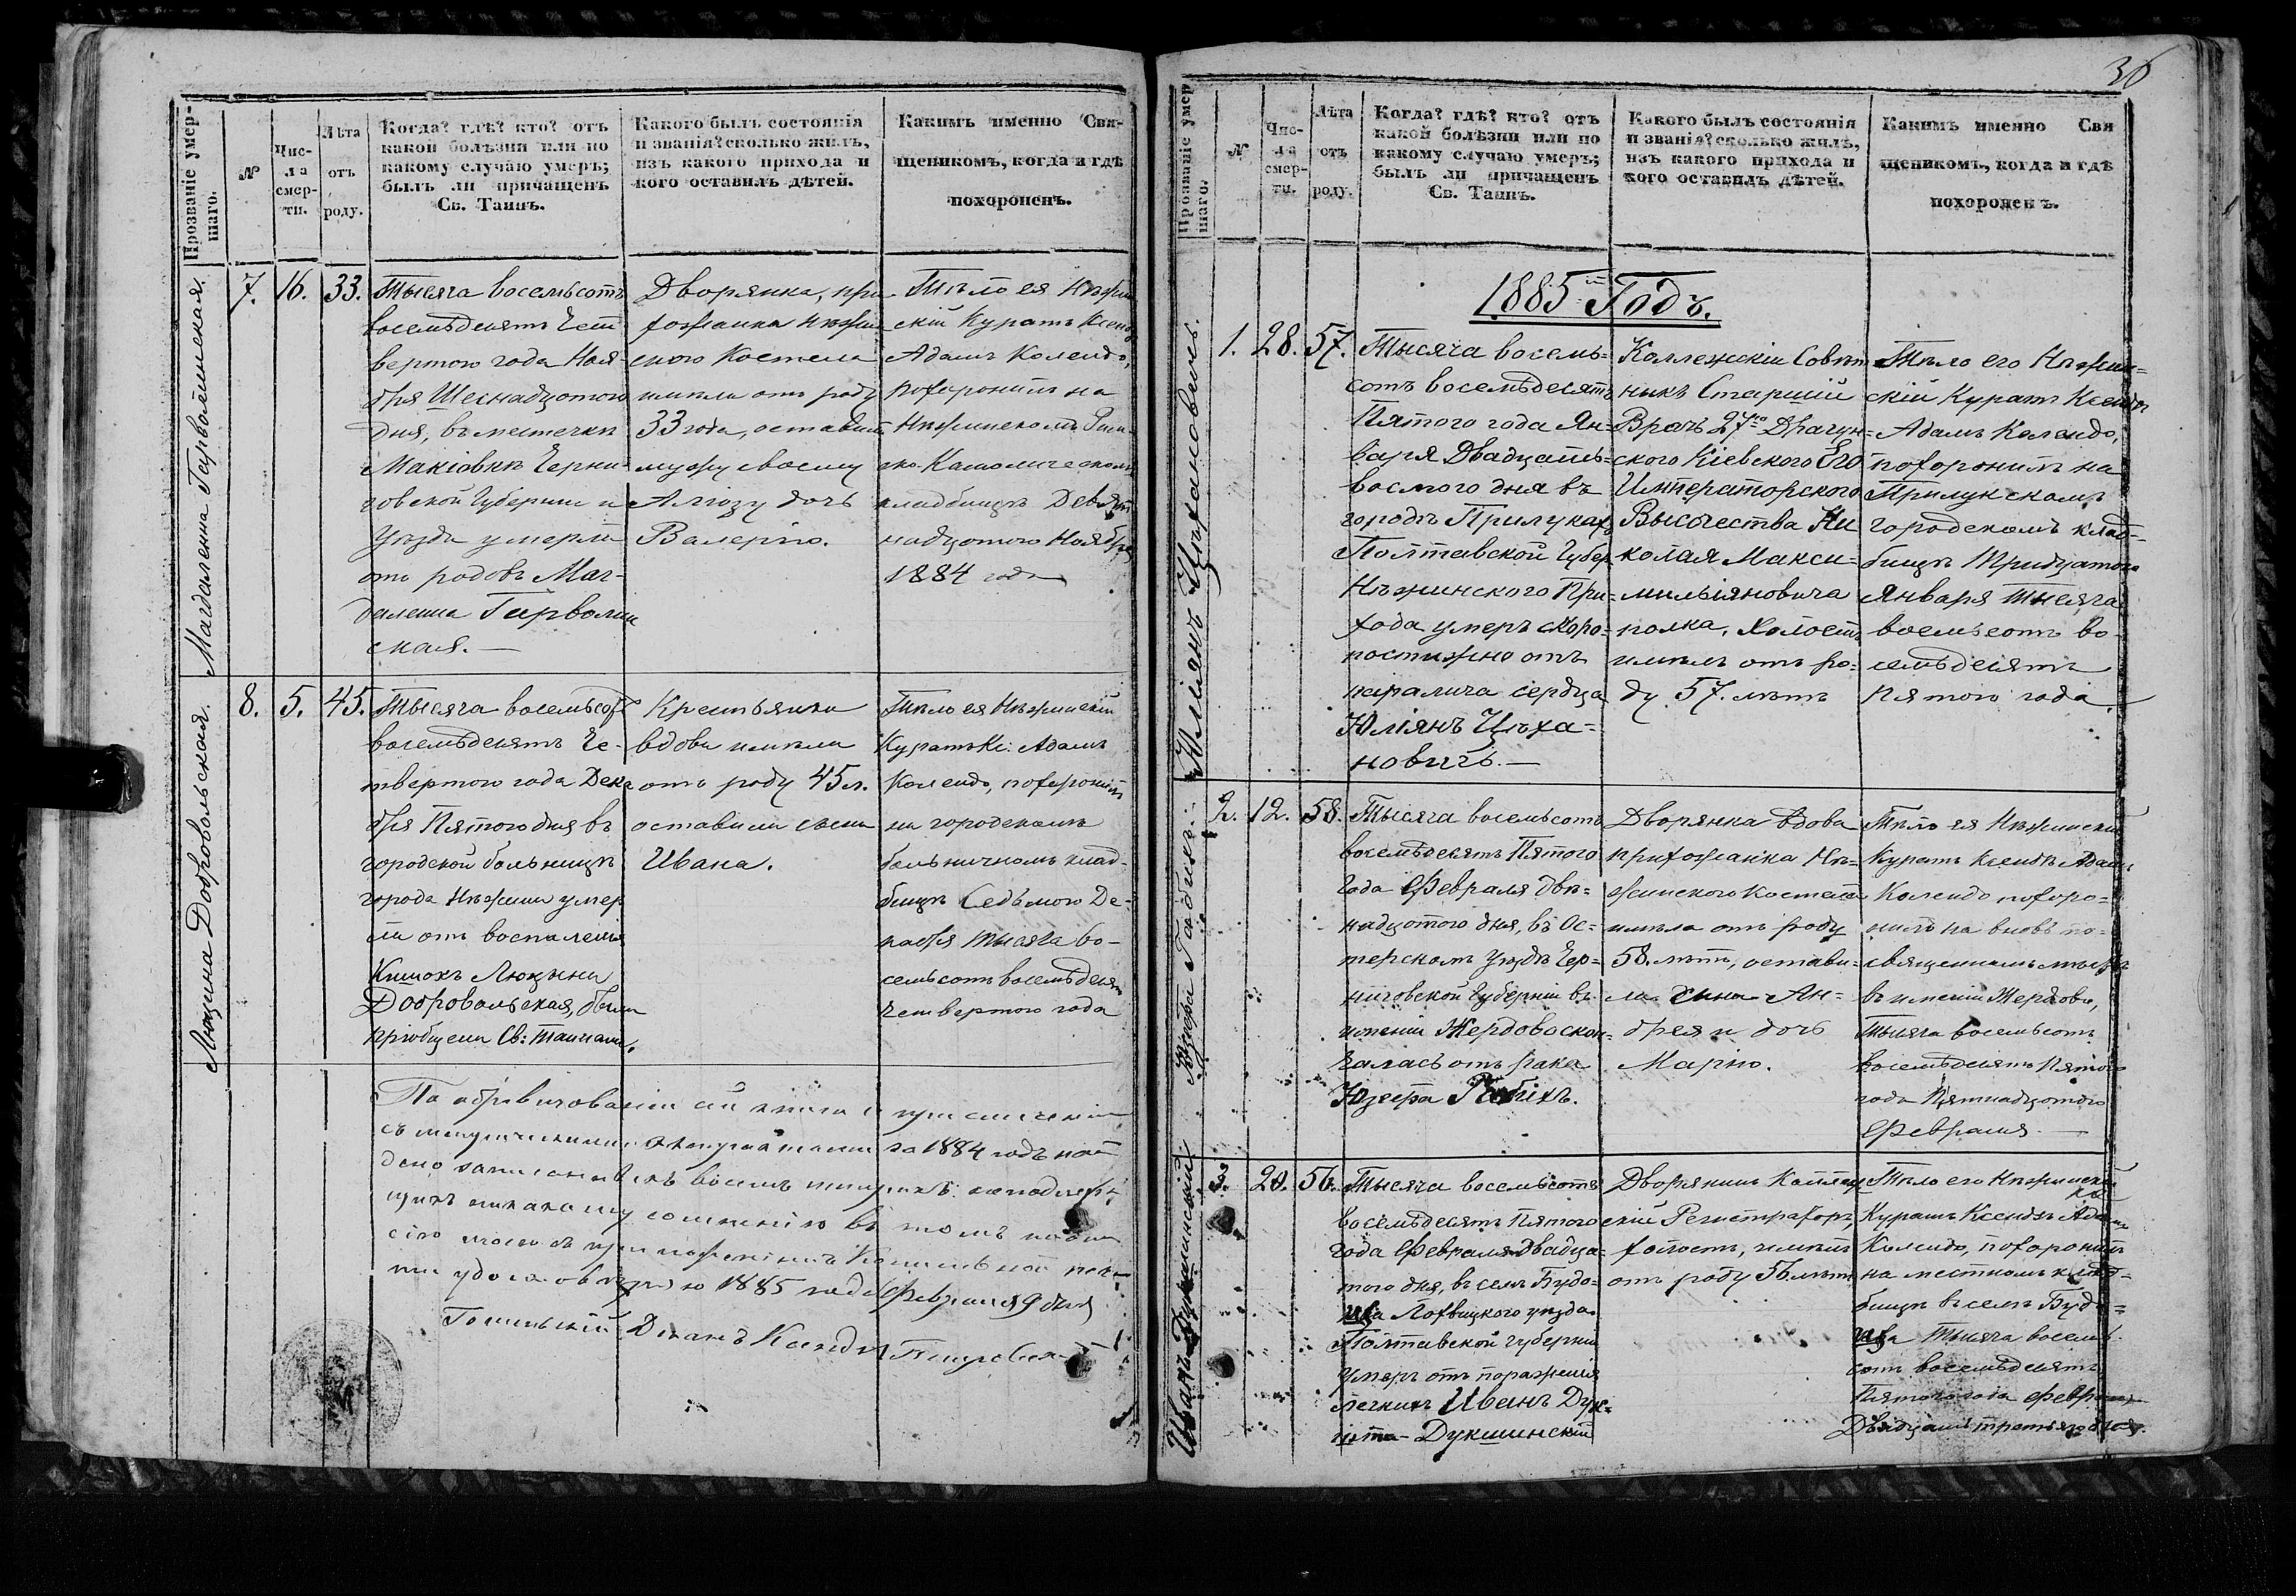 Прозваніе умер-
шаго.
№
Чис-
ла
смер-
ти.
Лѣта
отъ
роду.
Когда? гдѣ? кто? отъ
какой болѣзни или по
какому случаю умеръ;
былъ ли причащенъ
Св. Таинъ.
Какого былъ состоянія
и званія? сколько жилъ,
изъ какого прихода и
кого оставилъ дѣтей.
Какимъ именно Свя-
щеникомъ, когда и гдѣ
похороненъ.
Магдаленна
7.
16.
33.
Тысяча восемьсотъ
восемьдесятъ Чет
вертого года Ноя-
бря Шеснадцотого
дня, въ местечкѣ
Макіовкѣ Черни-
говской Губерніи и
Уезда умерла
отъ родовъ Маг-
далена
ская.
Дворянка, при
хожанка Нѣжин
ского Костела
имѣла отъ роду
33 года, оставила
мужу своему
дочь
Валерію.
Тѣло ея Нѣжин
скій Куратъ Ксендз
Адамъ Колендо,
похоронилъ на
Нѣжинскомъ Рим
ско-Католическомъ
кладбищѣ Девят
надцотого Ноября
1884 года
Люцина Добровольская.
8.
5.
45.
Тысяча восемьсотъ
восемьдесятъ Че-
твертого года Дека
бря Пятого дня въ
городской больницѣ
города Нѣжина умер
ла отъ воспаленія
Кишокъ Люцына
Добровольская, была
пріобщена Св: Таинами.
Крестьянка
вдова имѣла
отъ роду 45 л.
оставила сына
Ивана.
Тѣло ея Нѣжинскій
Куратъ Кс: Адамъ
Колендо, похоронилъ
на городскомъ
больничномъ клад-
бищѣ Седьмого Де-
кабря тысяча во-
семьсотъ восемьдесят
четвертого года
По обревизованіи сей книги
за 1884 годъ най
дено
удостовѣряю 1885 года Февраля 9 дня
Деканъ Ксендз
36
Прозваніе умер
шаго.
№
Чис-
ла
смер-
ти.
Лѣта
отъ
роду.
Когда? гдѣ? кто? отъ
какой болѣзни или по
какому случаю умеръ;
былъ ли причащенъ
Св. Таинъ.
Какого былъ состоянія
и званія? сколько жилъ,
изъ какого прихода и
кого оставилъ дѣтей.
Какимъ именно Свя
щеникомъ, когда и гдѣ
похороненъ.
1885й Годъ.
Юліянъ Цѣхановичъ.
1.
28.
57.
Тысяча восемь=
сотъ восемьдесятъ
Пятого года Ян-
варя Двадцать-
восмого дня въ
городѣ Прилукахъ
Полтавской Губер
Нѣжинского При=
хода умеръ скоро=
постижно отъ
паралича сердца
Юліянъ Цѣха=
новичъ.—
Коллежскій Совѣт
никъ Старшій
Врачъ 27го Драгун=
ского Кіевского Его
Императорского
Высочества Ни
колая Макси=
мильіяновича
полка, Холостъ
имѣлъ отъ ро=
ду 57. лѣтъ
Тѣло его Нѣжин=
скій Куратъ Ксендз
Адамъ Колендо,
похоронилъ на
Прилукскомъ
городскомъ клад=
бищѣ Тридцатого
Января Тысяча
восемьсотъ во-
семьдесятъ
пятого года
2.
12.
58.
Тысяча восемьсотъ
восемьдесятъ Пятого
года Февраля две=
надцотого дня, въ Ос=
терскомъ Уездѣ Чер=
ниговской Губерніи въ
имѣніи Жердова скон=
чалась отъ рака
Юзефа
Дворянка вдова
прихожанка Нѣ=
жинского Костела
имѣла отъ роду
58. лѣтъ, остави=
ла сына Ан=
дрея и дочь
Марію.
Тѣло ея Нѣжинскій
Куратъ Ксендзъ Адамъ
Колендо похоро=
нилъ на вновь по=
священномъ мѣстѣ
въ имѣніи Жердова,
Тысяча восемьсотъ
восемьдесятъ Пятого
года Пятнадцотого
Февраля.—
Иванъ Дукшинскій
3.
20.
56.
Тысяча восемьсотъ
восемьдесятъ Пятого
года Февраля Двадца=
того дня, въ селѣ Будо=
Лохвицкого уезда
Полтавской губерніи
умеръ отъ пораженія
легкихъ Иванъ Дук=
шта-Дукшинскій
Дворянинъ Коллеж
скій Регистраторъ,
холостъ, имѣлъ
отъ роду 56 лѣтъ
Тѣло его Нѣжинскій
Куратъ Ксендзъ Адамъ
Колендо, похоронилъ
на местномъ клад=
бищѣ въ селѣ Будо=
Тысяча восемь
сотъ восемьдесятъ
Пятого года Февраля
Двадцать третьяго дня.